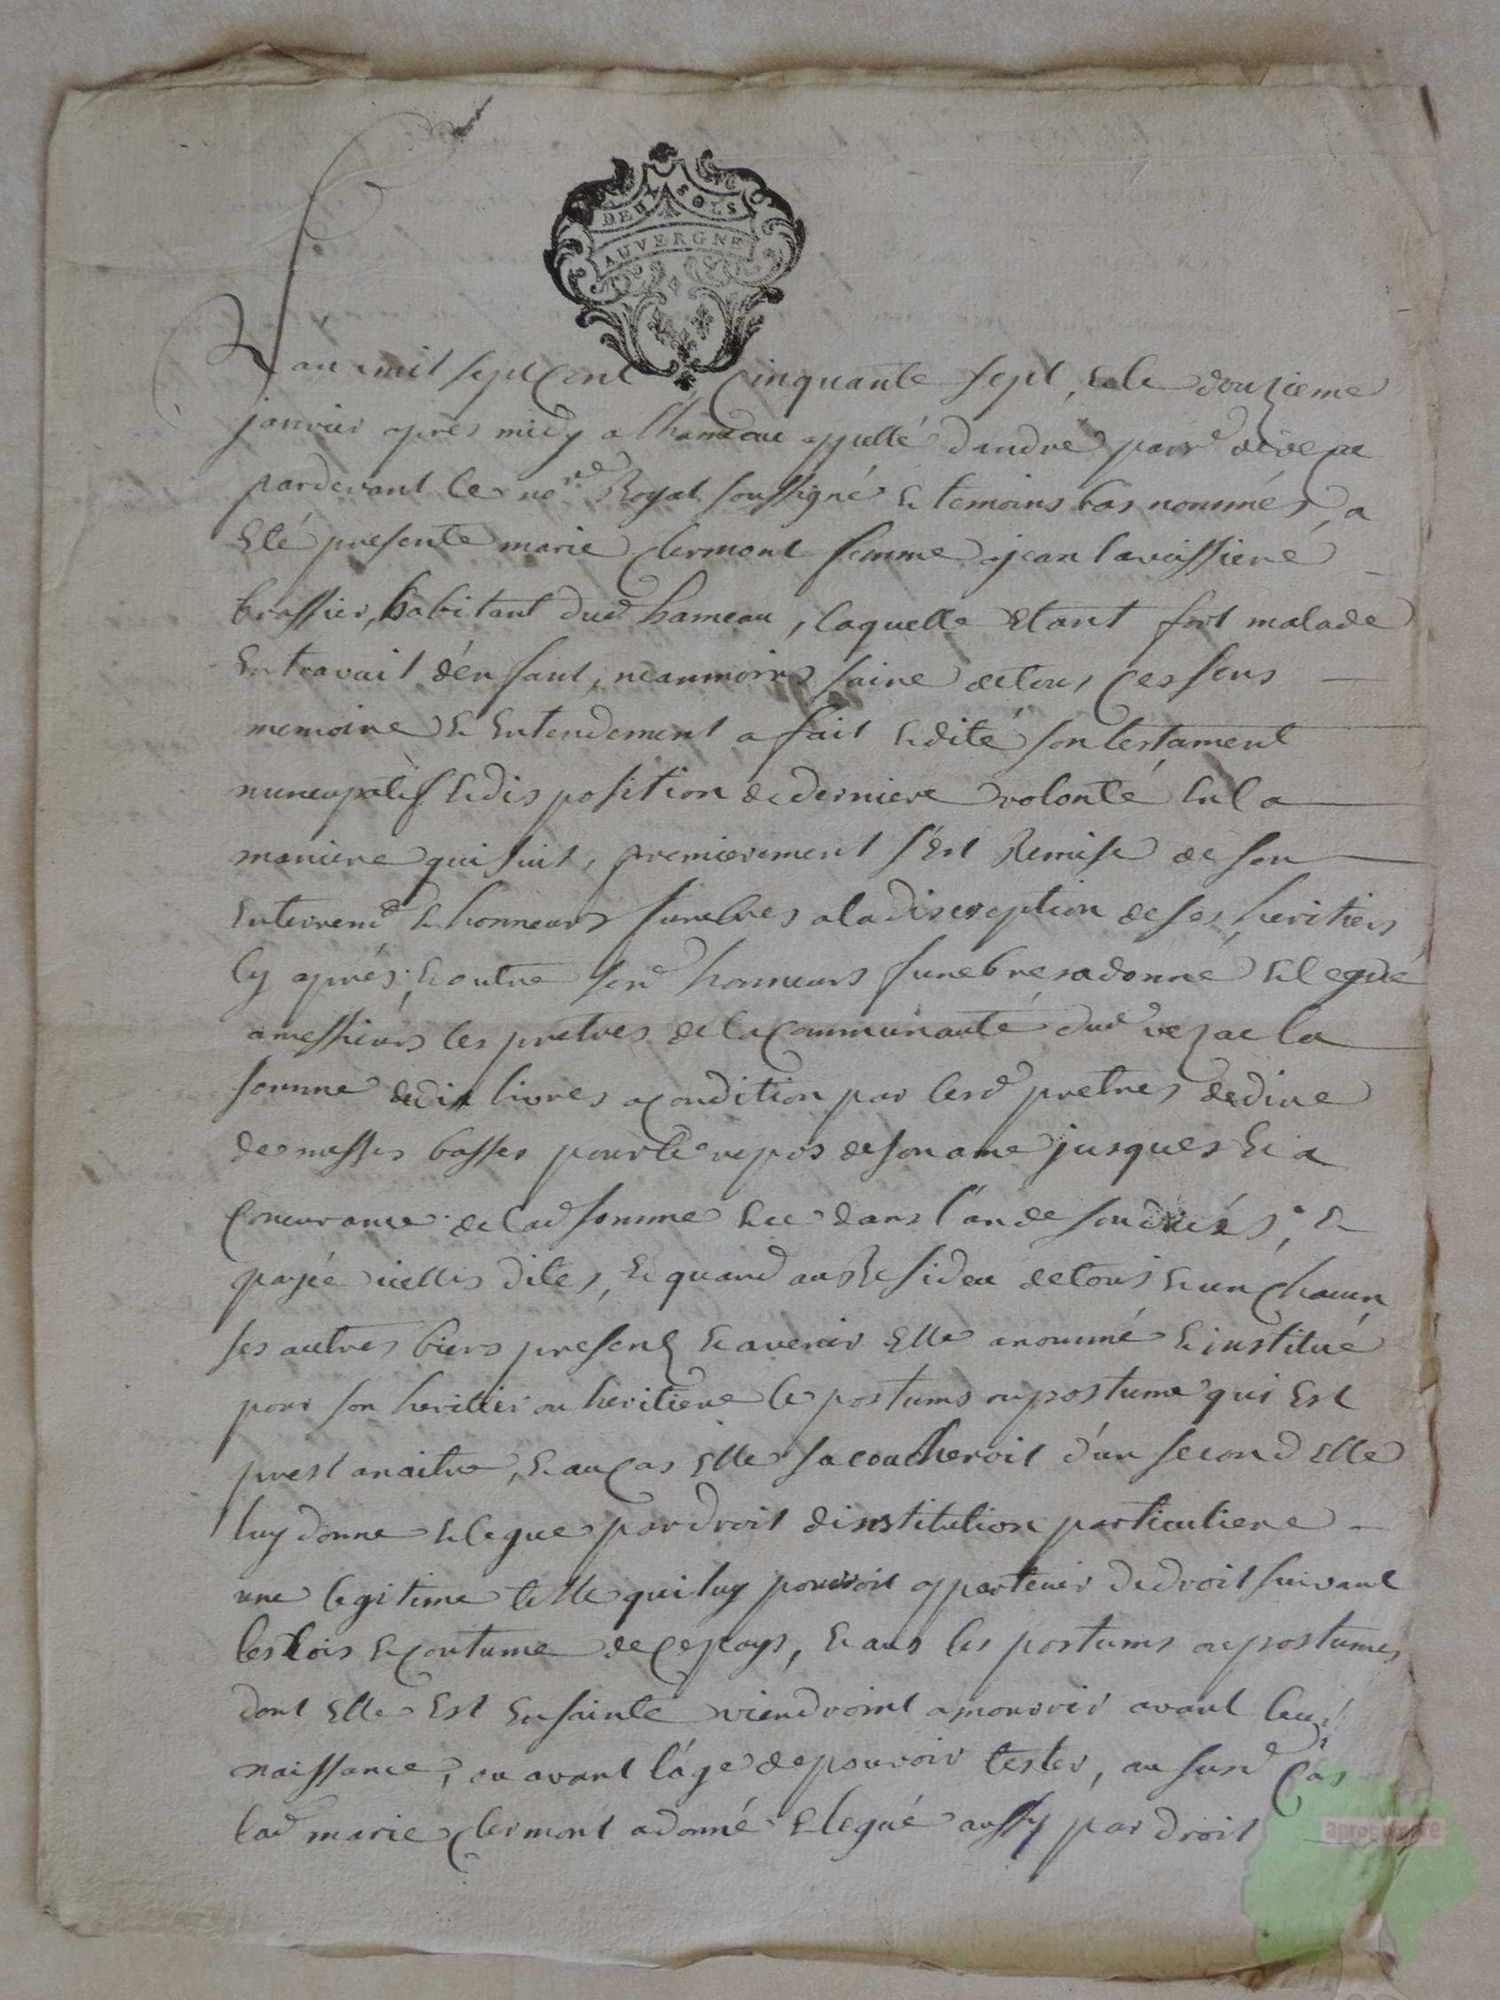 DEUX SOLS
AUVERGNE
L'an mil sept cent cinquante sept, & le douzieme
janvier apres midy a lhameau appellé dandre parr.e de vezac
pardevant le no.re Royal soussigné & temoins bas nommés, a
Eté presente marie clermont femme a jean lavaissiere
brassier, habitant dud hameau, laquelle Etant fort malade
En travail d'enfant, neanmoins saine de tous ces sens
memoire & Entendement a fait & dité son testament
nuncupatif & disposition de derniere volonté En la
maniere qui suit, premierement s'Est Remise de son
Enterremt & honneurs funebres a la discreption de ses heritiers
Cy après, & outre sesd honneurs funebres a donné & legué
a messieurs les pretres de la Communauté dud vezac la
somme de dix livres a condition par lesd pretres de dire
de messes basses pour le repos de son ame jusques & a
Concurance de lad somme & ce dans l'an de son décés, &
payée icelles dites, & quand au Residu de tous & un chacun
ses autres biens present & avenir Elle a nommé & institué
pour son heritier ou heritiere le postume ou postume qui Est
prest a naitre, & au cas Elle sacoucheroit d'un second Elle
luy donne & legue par droit dinstitution particuliere
une legitime telle qui luy pourroit appartenir de droit suivant
les Lois & coutume de ce pays, & au cas les postums ou postumes
dont Elle Est Ensainte viendroint a mourrir avant leur
naissance, ou avant l'age de pouvoir tester, au susd Cas
lad marie clermont a donné & legué aussy par droit
apropos